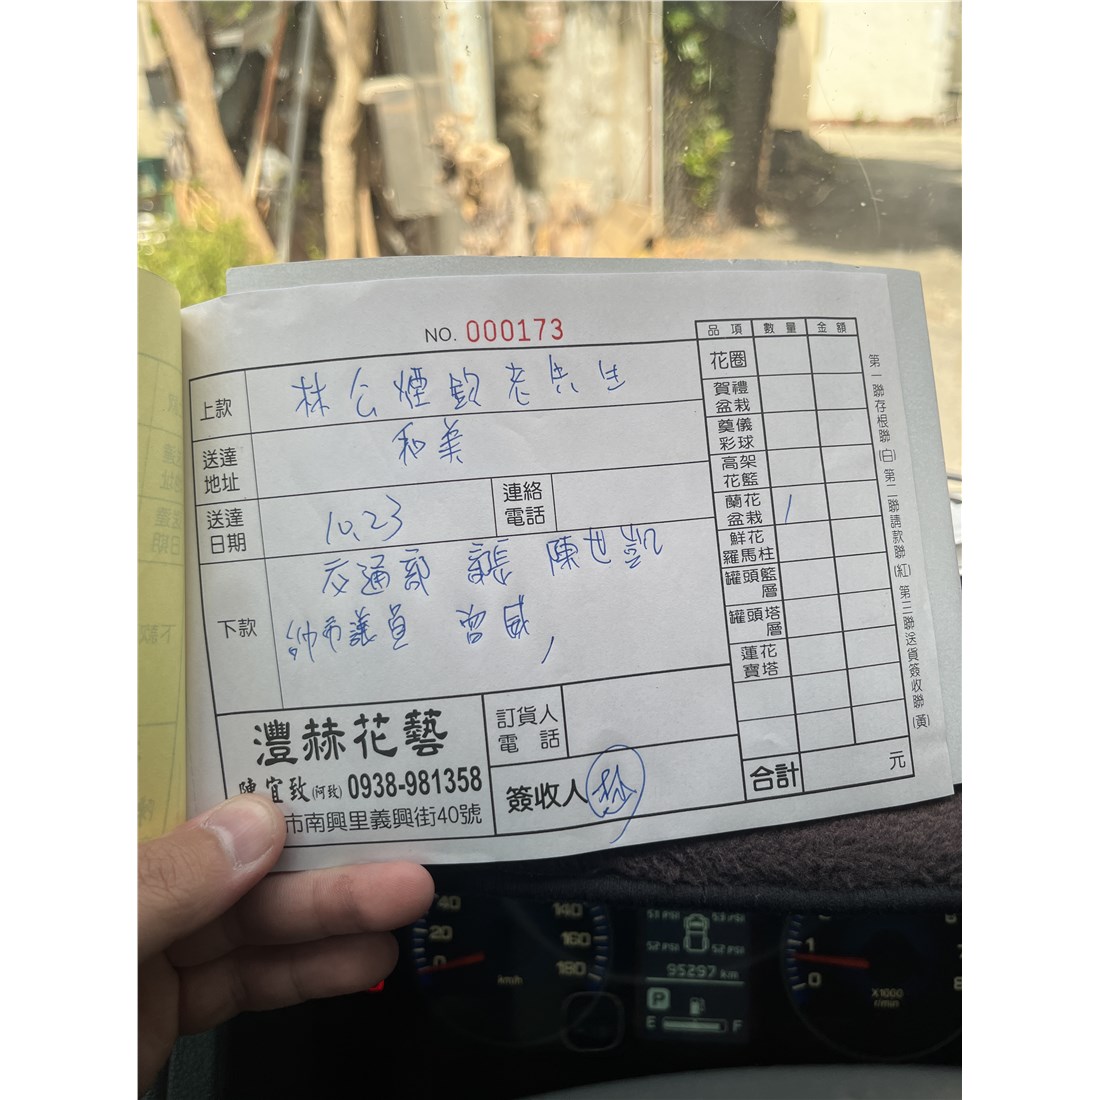 NO. 000173
上款 林公煙欽老先生
送達地址 和美
送達日期 10.23
連絡電話
下款 交通部 部長 陳世凱
市議員 曾威
灃赫花藝
陳宜致(阿致) 0938-981358
市南興里義興街40號
訂貨人電話
簽收人 林
品項 數量 金額
花圈
賀禮盆栽
奠儀彩球
高架花籃
蘭花盆栽 1
鮮花羅馬柱
罐頭籃 層
罐頭塔 層
蓮花寶塔
合計 元
第一聯存根聯(白) 第二聯請款聯(紅) 第三聯送貨簽收聯(黃)
40
20
0
140
160
180
km/h
51 PSI 53 PSI
52 PSI 52 PSI
95297 km
P
E F
1
0
X1000
r/min
8